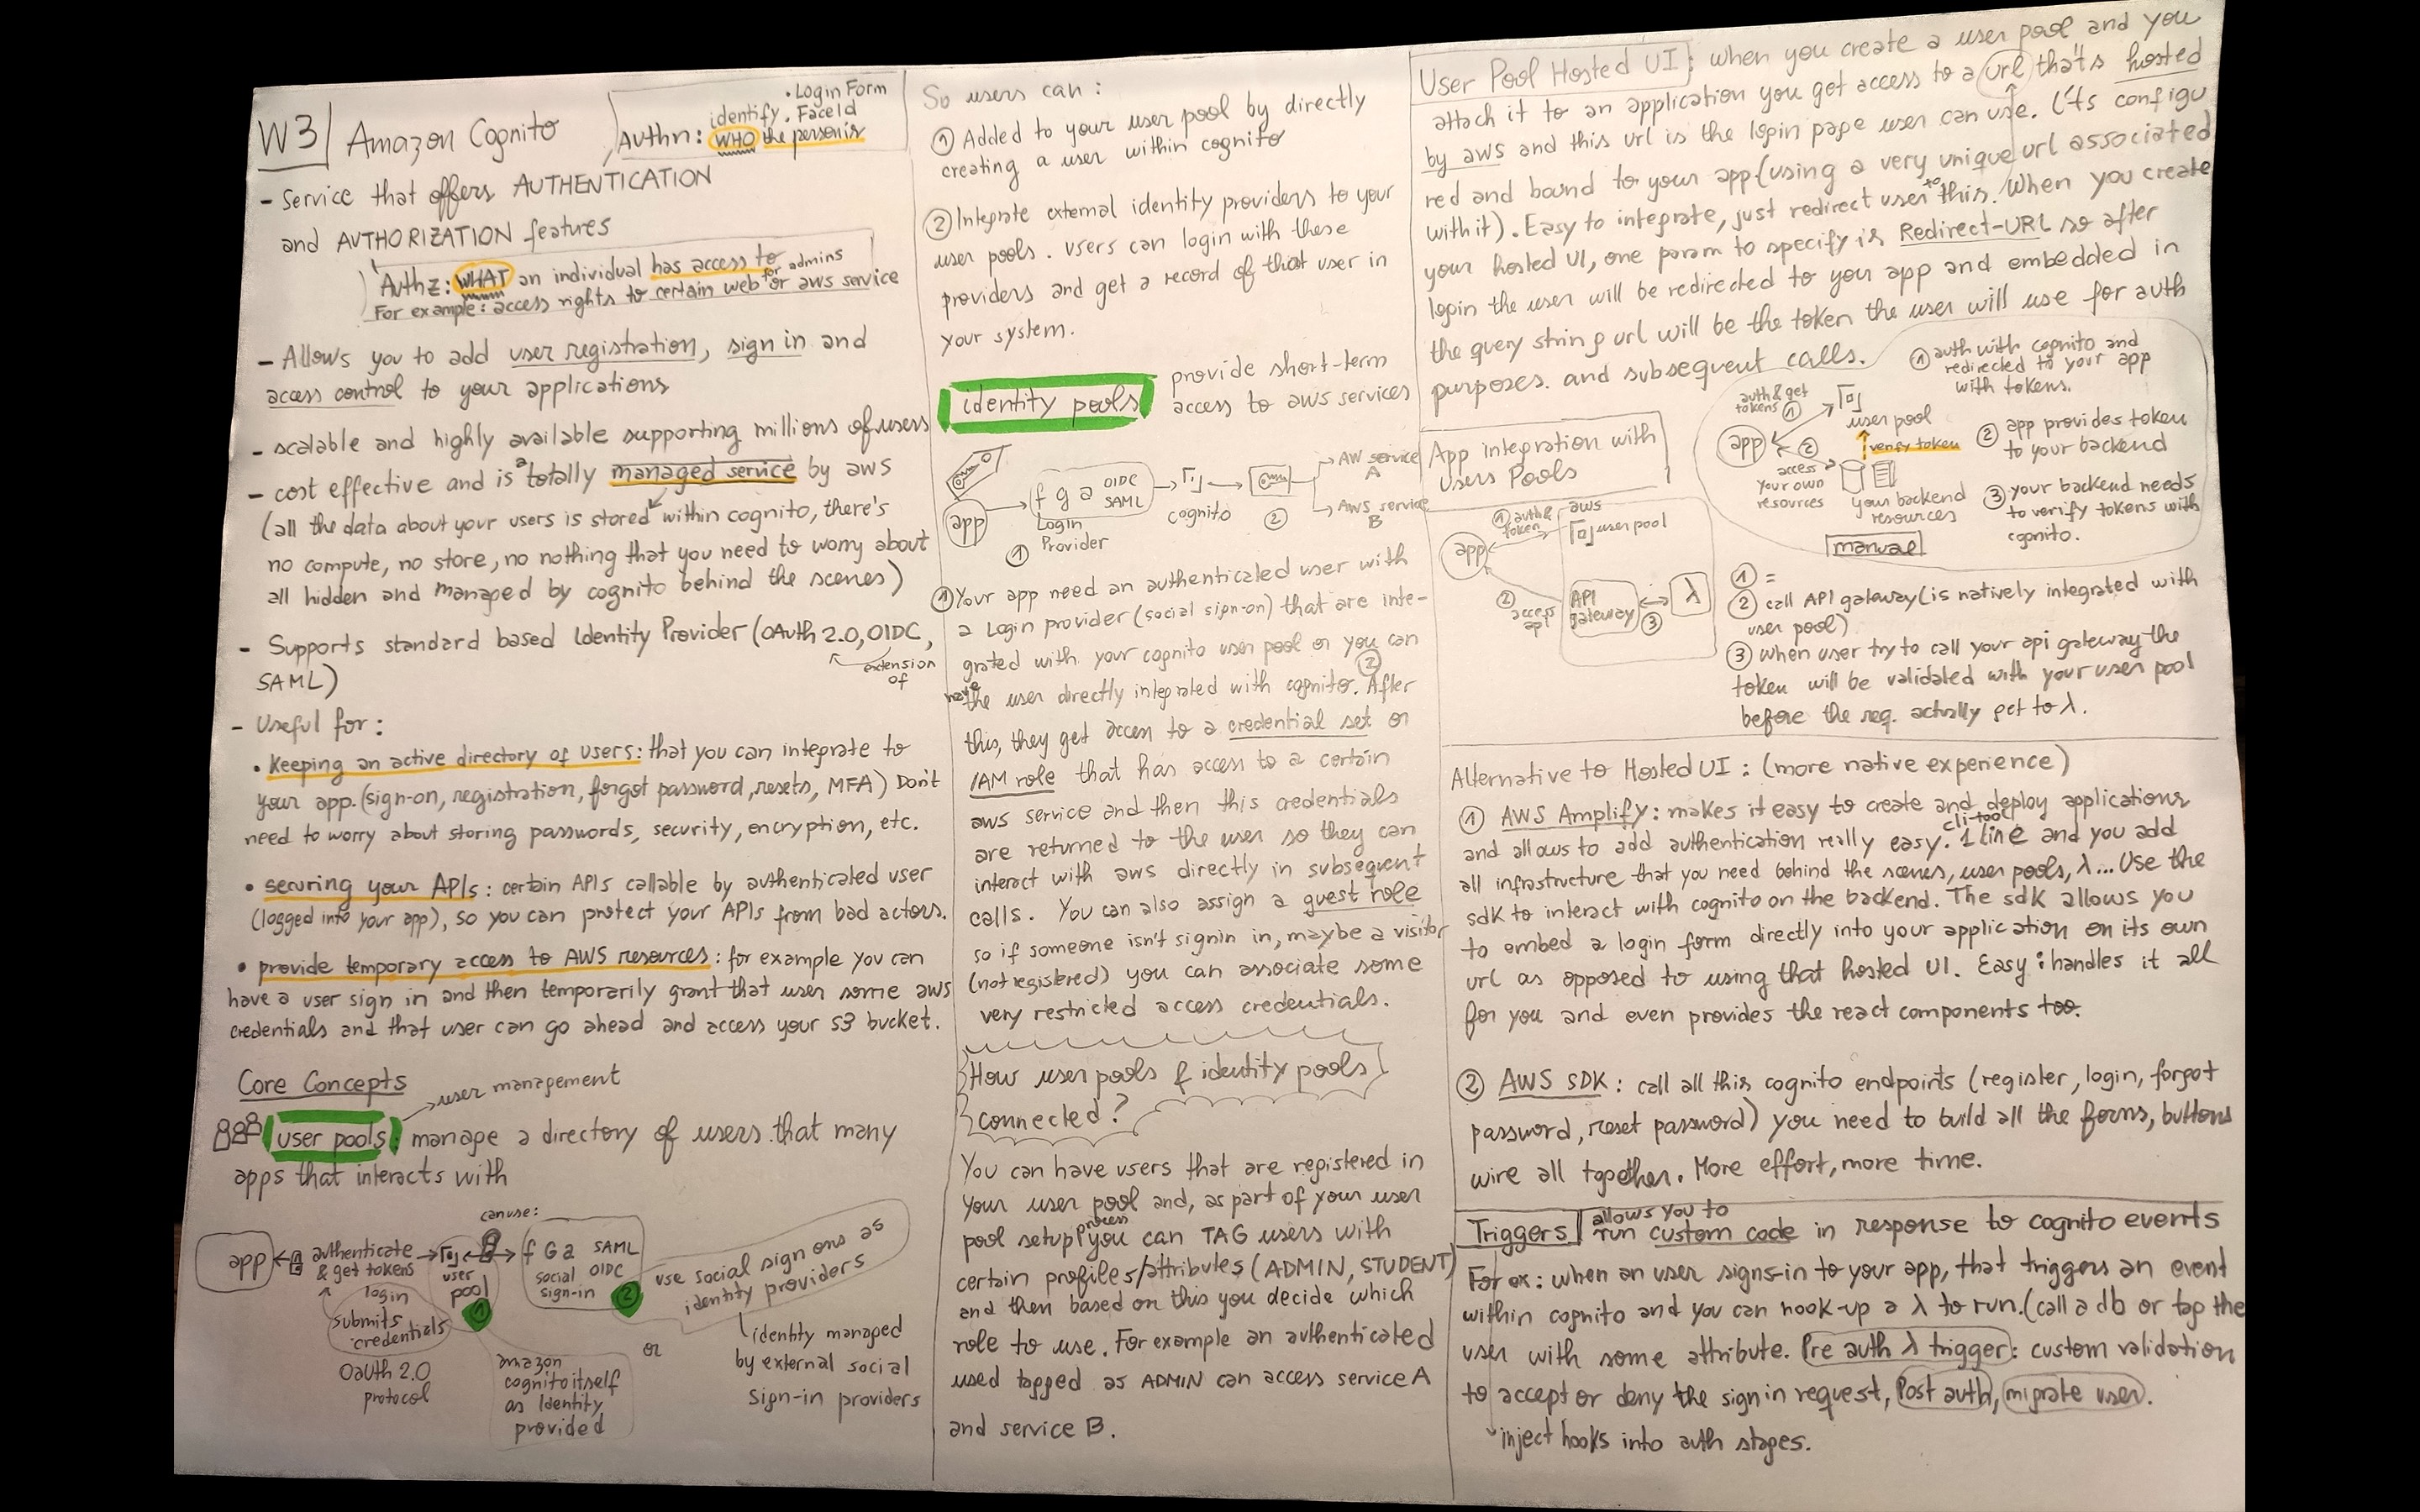 W3 Amazon Cognito
• Login Form
identify • FaceId
Authn: WHO the person is
- Service that offers AUTHENTICATION
and AUTHORIZATION features
Authz: WHAT an individual has access to
for admins
For example: access rights to certain web or aws service
- Allows you to add user registration, sign in and
access control to your applications
- scalable and highly available supporting millions of users
- cost effective and is a totally managed service by aws
(all the data about your users is stored within cognito, there's
no compute, no store, no nothing that you need to worry about
all hidden and managed by cognito behind the scenes)
- Supports standard based Identity Provider (OAuth 2.0, OIDC,
extension of
SAML)
- Useful for:
• Keeping an active directory of users: that you can integrate to
your app. (sign-on, registration, forgot password, resets, MFA) Don't
need to worry about storing passwords, security, encryption, etc.
• securing your APIs: certain APIs callable by authenticated user
(logged into your app), so you can protect your APIs from bad actors.
• provide temporary access to AWS resources: for example you can
have a user sign in and then temporarily grant that user some aws
credentials and that user can go ahead and access your S3 bucket.
Core Concepts
user management
user pools: manage a directory of users that many
apps that interacts with
can use:
app
authenticate
& get tokens
user
pool
1
f G a SAML
social OIDC
sign-in
2
use social sign ons as
identity providers
login
submits
credentials
OAuth 2.0
protocol
amazon
cognito itself
as Identity
provided
or
identity managed
by external social
sign-in providers
So users can:
① Added to your user pool by directly
creating a user within cognito
② Integrate external identity providers to your
user pools. users can login with these
providers and get a record of that user in
your system.
identity pools
provide short-term
access to aws services
app
f g a OIDC
SAML
Login
Provider
①
cognito
②
AW service
A
AWS service
B
① Your app need an authenticated user with
a Login provider (social sign-on) that are inte-
grated with your cognito user pool or you can
have the user directly integrated with cognito. ② After
this, they get access to a credential set or
IAM role that has access to a certain
aws service and then this credentials
are returned to the user so they can
interact with aws directly in subsequent
calls. You can also assign a guest role
so if someone isn't signin in, maybe a visitor
(not registered) you can associate some
very restricted access credentials.
How user pools & identity pools
connected?
You can have users that are registered in
your user pool and, as part of your user
pool setup process you can TAG users with
certain profiles/attributes (ADMIN, STUDENT)
and then based on this you decide which
role to use. For example an authenticated
used tagged as ADMIN can access service A
and service B.
User Pool Hosted UI: when you create a user pool and you
attach it to an application you get access to a url that's hosted
by aws and this url is the login page user can use. It's configu
red and bound to your app (using a very unique url associated
with it). Easy to integrate, just redirect user to this. When you create
your hosted UI, one param to specify is Redirect-URL so after
login the user will be redirected to your app and embedded in
the query string url will be the token the user will use for auth
purposes. and subsequent calls.
① auth with cognito and
redirected to your app
with tokens.
auth & get
tokens ①
user pool
app
②
verify token
access
your own
resources
your backend
resources
② app provides token
to your backend
③ your backend needs
to verify tokens with
cognito.
manual
App integration with
Users Pools
① auth &
token
aws
user pool
app
② access
api
API
gateway
③
λ
① =
② call API gateway (is natively integrated with
user pool)
③ when user try to call your api gateway the
token will be validated with your user pool
before the req. actually get to λ.
Alternative to Hosted UI: (more native experience)
① AWS Amplify: makes it easy to create and deploy applications
cli tool
and allows to add authentication really easy. 1 line and you add
all infrastructure that you need behind the scenes, user pools, λ... Use the
sdk to interact with cognito on the backend. The sdk allows you
to embed a login form directly into your application on its own
url as opposed to using that hosted UI. Easy: handles it all
for you and even provides the react components too.
② AWS SDK: call all this cognito endpoints (register, login, forgot
password, reset password) you need to build all the forms, buttons
wire all together. More effort, more time.
Triggers allows you to
run custom code in response to cognito events
For ex: when an user signs-in to your app, that triggers an event
within cognito and you can hook-up a λ to run. (call a db or tag the
user with some attribute. Pre auth λ trigger: custom validation
to accept or deny the sign in request, Post auth, migrate user.
inject hooks into auth stages.